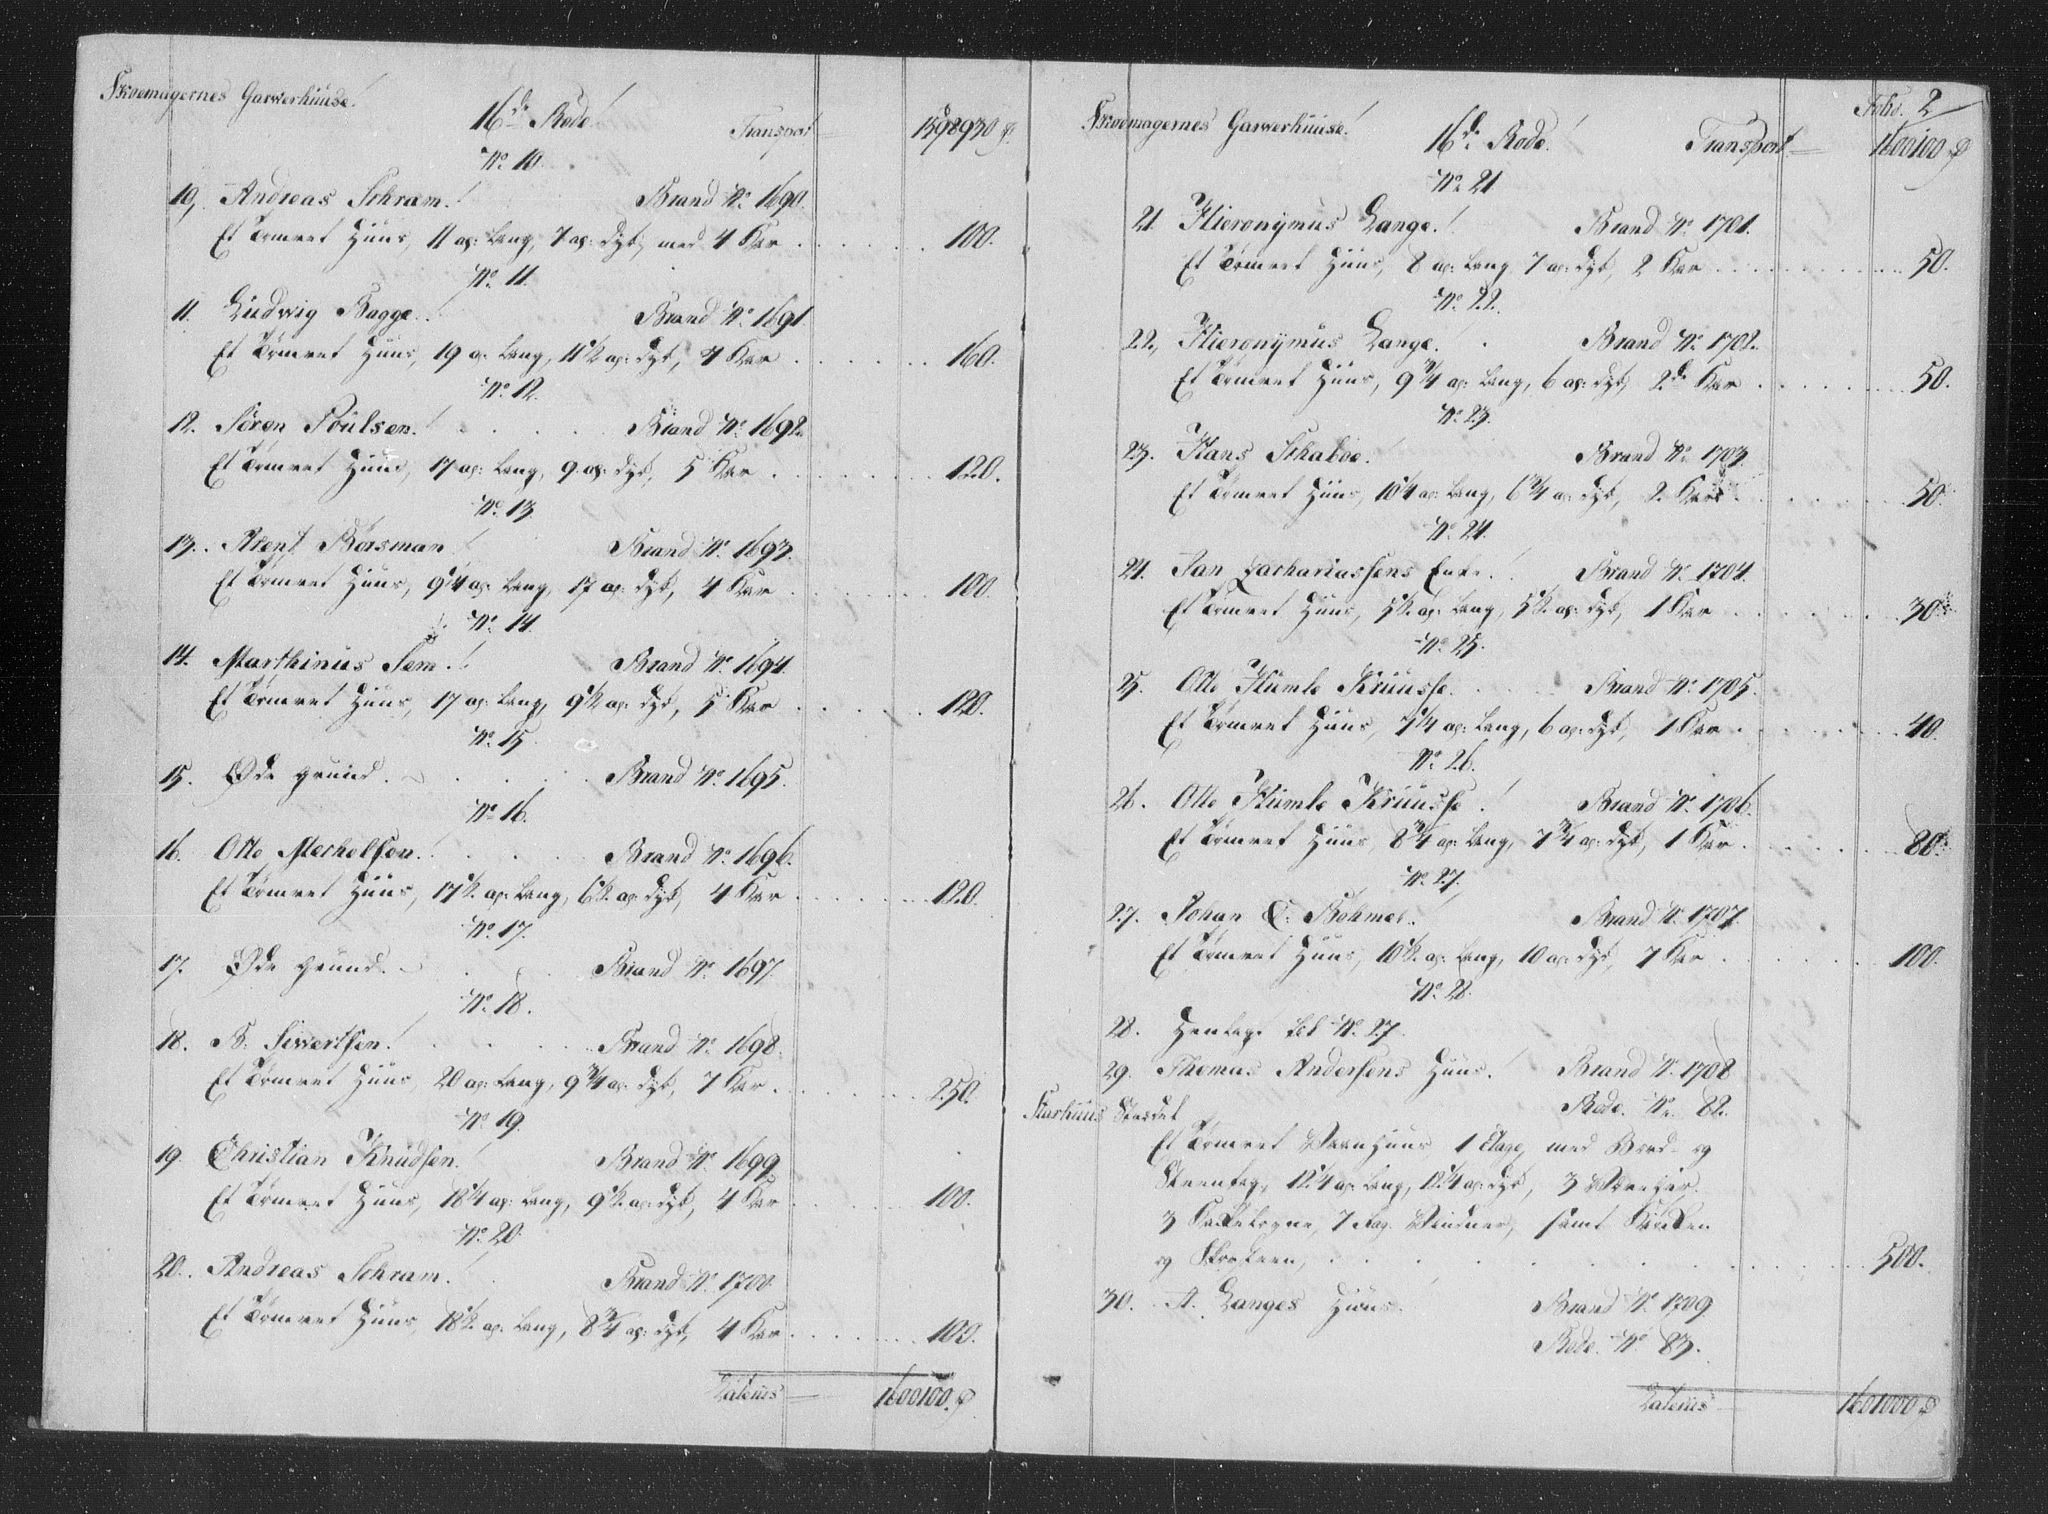 Skoemagernes Garwerhuuse!
16de Rode!
Transport 1598930
No 10.
10, Andreas Schram! Brand No 1690.
Et Tömret Huus, 11 al: lang, 7 al: dyb, med 4 Kar 100.
No 11.
11. Ludwig Bagge. Brand No 1691.
Et Tömret Huus, 19 al: lang, 11½ al: dyb, 7 Kar 160.
No 12.
12. Sören Poulsen! Brand No 1692.
Et Tömret Huus, 17 al: lang, 9 al: dyb, 5 Kar 120.
No 13.
13. Arent Börsman! Brand No 1693.
Et Tömret Huus, 9¼ al: lang, 17 al: dyb, 4 Kar 100.
No 14.
14. Marthinus Sem! Brand No 1694.
Et Tömret Huus, 17 al: lang, 9½ al: dyb, 5 Kar 120.
No 15.
15. Øde grund. Brand No 1695.
No 16.
16. Otte Mechelsen! Brand No 1696.
Et Tömret Huus, 17½ al: lang, 6½ al: dyb, 4 Kar 120.
No 17.
17. Øde grund. Brand No 1697.
No 18.
18. B: Siwertsen! Brand No 1698.
Et Tömret Huus, 20 al: lang, 9¾ al: dyb, 7 Kar 250.
No 19.
19. Christian Knudsen! Brand No 1699.
Et Tömret Huus, 18¼ al: lang, 9½ al: dyb, 4 Kar 100.
No 20.
20. Andreas Schram! Brand No 1700.
Et Tömret Huus, 18½ al: lang, 8¾ al: dyb, 4 Kar 100.
Laterus 1600100.
Folio. 2
Skoemagernes Garwerhuuse!
16de Rode!
Transport 1600100
No 21
21. Hieronymus Lange! Brand No 1701.
Et Tömret Huus, 8 al: lang 7 al: dyb, 2 Kar 50.
No 22.
22, Hieronymus Lange. Brand No 1702.
Et Tömret Huus, 9¾ al: lang, 6 al: dyb, 2de Kar 50.
No 23.
23. Hans Schaboe! Brand No 1703.
Et Tömret Huus, 10¼ al: lang, 6¾ al: dyb, 2 Kar 50.
No 24.
24. Jan Zachariassens Enke! Brand No 1704.
Et Tömret Huus, 5½ al: lang, 5½ al: dyb, 1 Kar 30.
No 25.
25. Otte Humle Kruusse. Brand No 1705.
Et Tömret Huus, 7¼ al: lang, 6 al: dyb, 1 Kar 40.
No 26.
26. Otte Humle Kruusse! Brand No 1706.
Et Tömret Huus, 8¾ al: lang, 7¾ al: dyb, 1 Kar 80.
No 27.
27. Johan C: Bohmer! Brand No 1707.
Et Tömret Huus, 10½ al: lang, 10 al: dyb, 7 Kar 100.
No 28.
28. Henlagt til No 27.
29. Thomas Andersens Huus! Brand No 1708
Rode No 82.
Et Tömret Vaanhuus 1 Etage, med Bord- og
Steentag, 12¼ al: lang, 12¼ al: dyb, 3 Værelser.
3 Kakelogne, 7 fag Vinduer, samt Kiöken
og Skorsteen, 500.
30. A. Langes Huus. Brand No 1709.
Rode No 83.
Laterus 1601000